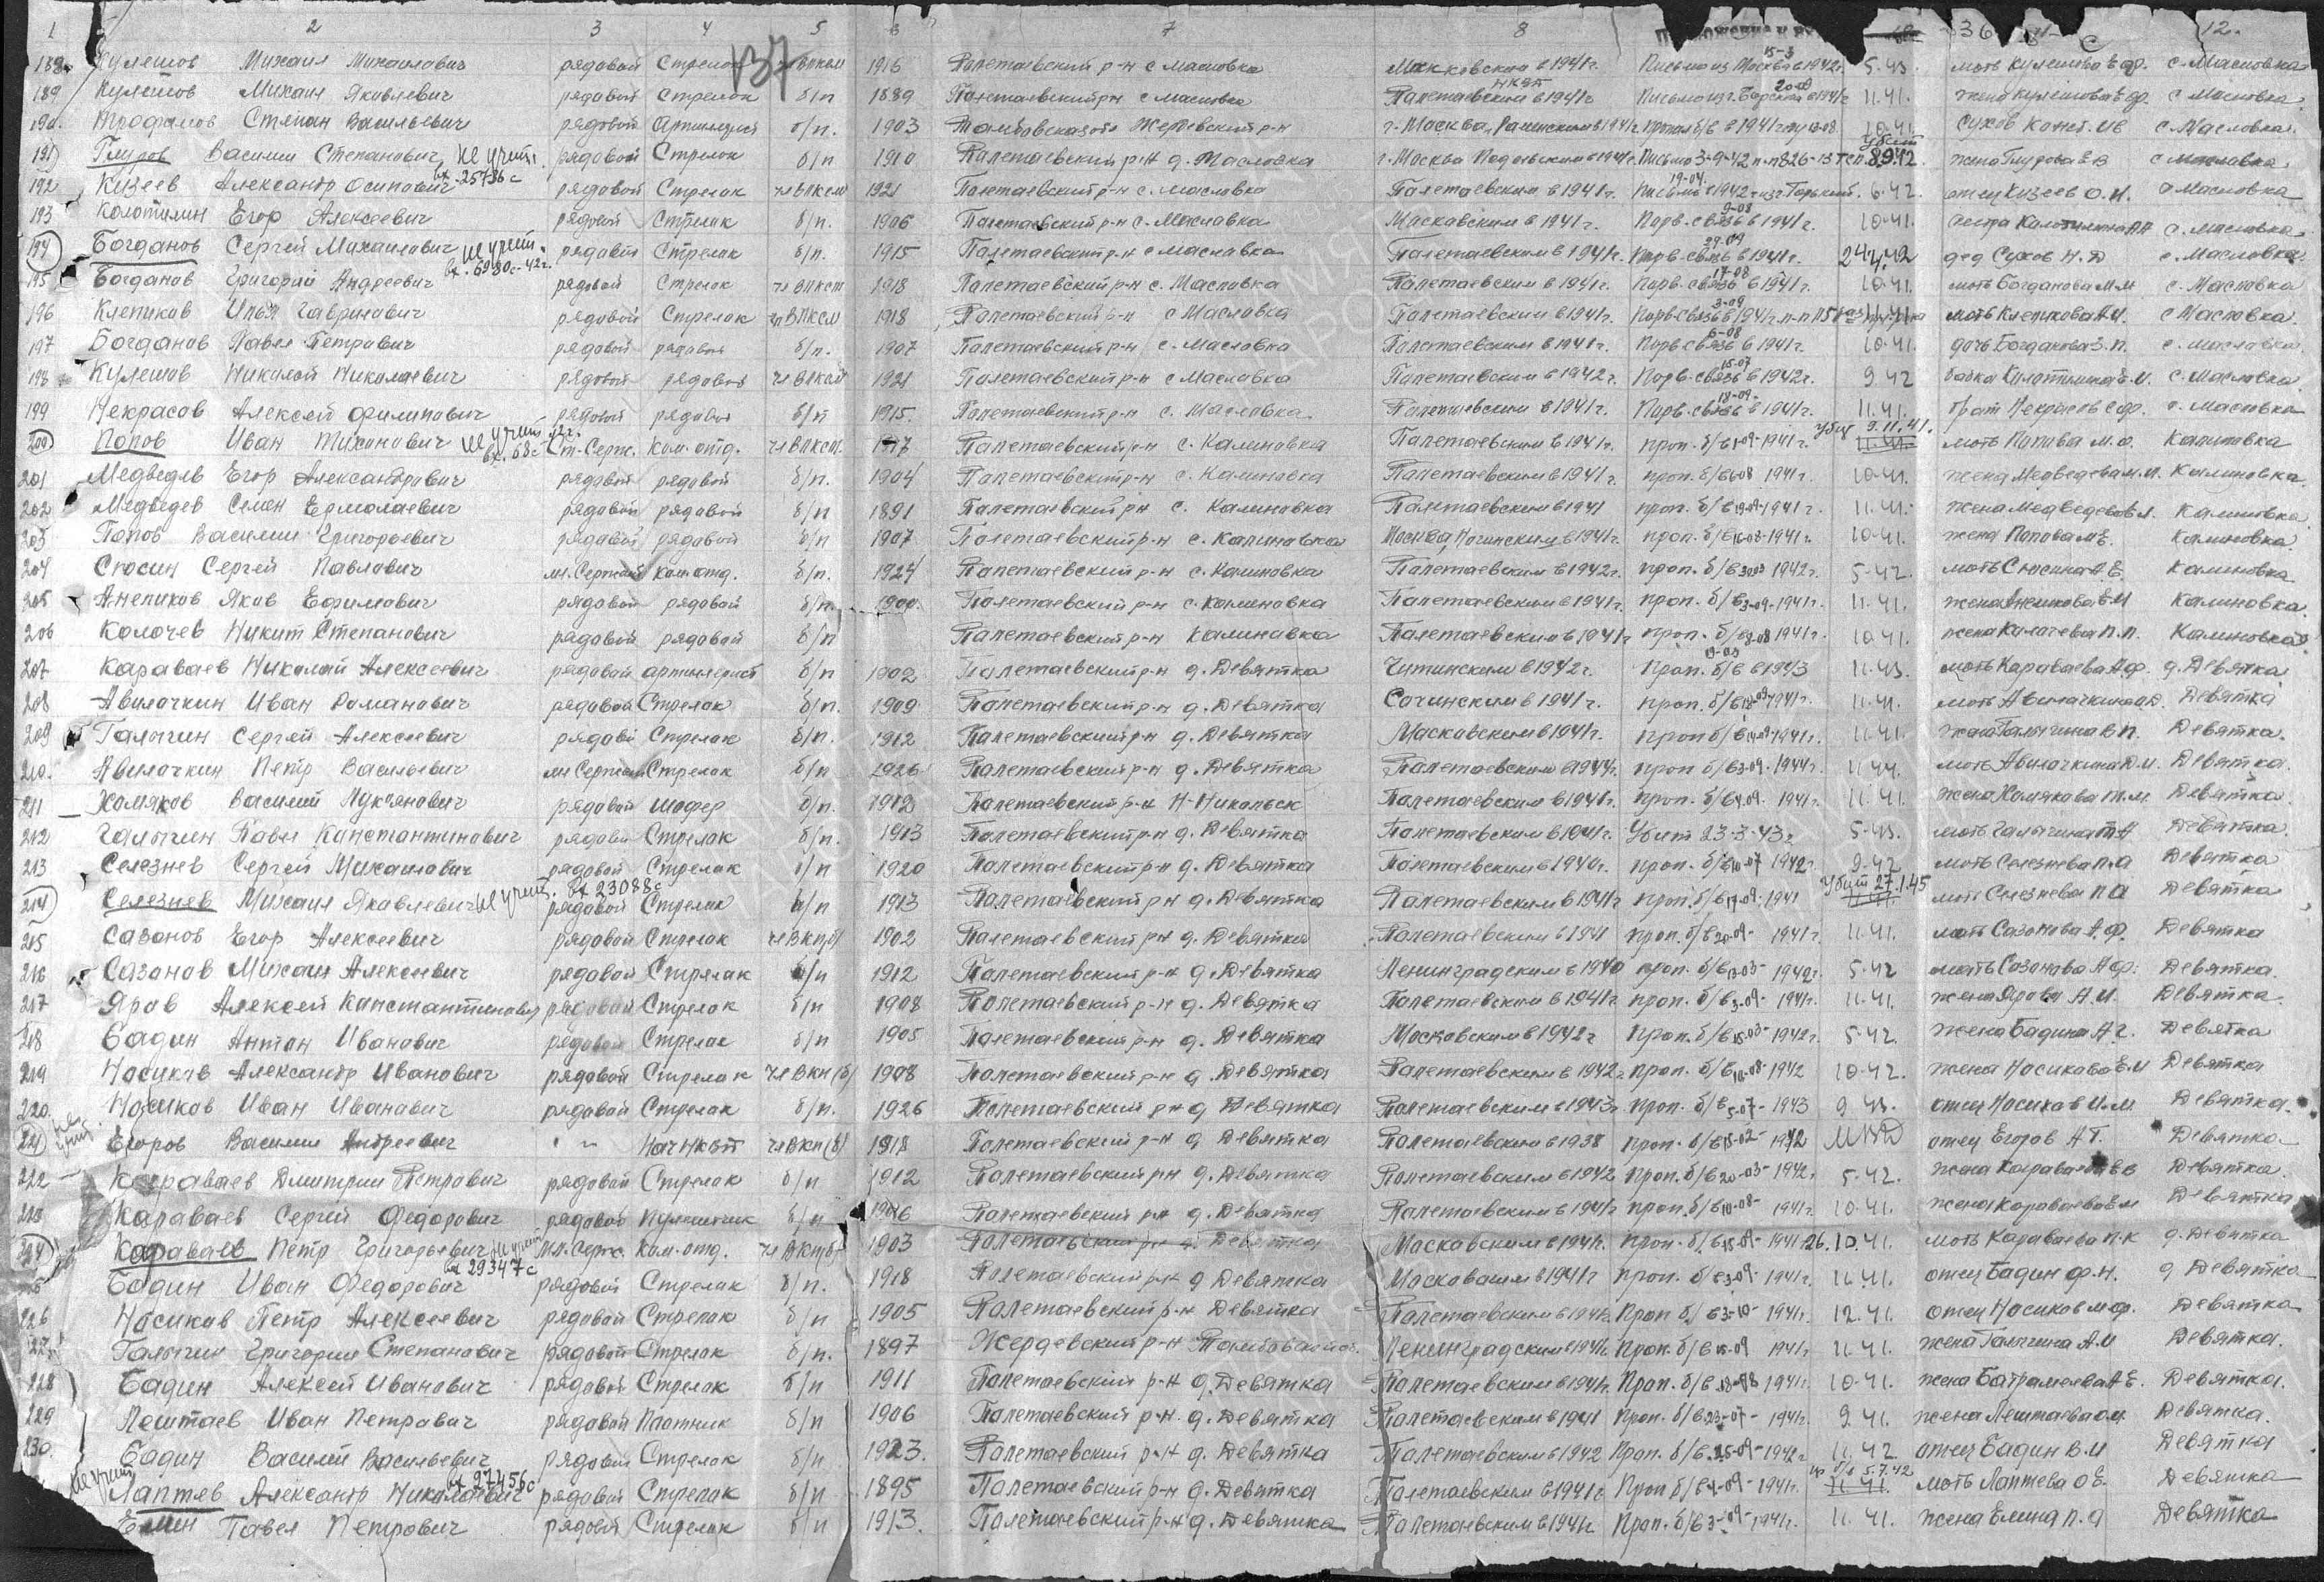 1 2 3 4 5 6 7 8 36 12.
137
188 Кулешов Михаил Михайлович рядовой Стрелок чл ВЛКСМ 1916 Полетаевский р-н с Масловка в 1941г. Письмо из Москвы в 1942г. 15-3 5.43. мать Кулешова Е.Ф. с. Масловка
189 Кулешов Михаил Яковлевич рядовой Стрелок б/п 1889 Полетаевский р-н с Масловка Полетаевским НКВД в 1941г 20-08 11.41. жена Кулешова Е.Ф. с Масловка
190. Трофимов Степан Васильевич рядовой Артиллерист б/п. 1903 Жердевский р-н г. Москва, в 1941г. 10.41. с Масловка.
191 Глуров Василий Степанович не учит. рядовой Стрелок б/п 1910 Полетаевский р-н д. Масловка г. Москва Подольским в 1941г. Письмо 3-9-42 п-п 826 убит 8.9.42 жена Глурова Е В с Масловка.
192 Кузеев Александр Осипович вх. 25736с рядовой Стрелок чл ВЛКСМ 1921 Полетаевский р-н с. Масловка Полетаевским в 1941г. Письмо 19-04 1942г из г. Горький. 6.42 отец Кузеев О.И. с Масловка
193 Колотилин Егор Алексеевич рядовой Стрелок б/п. 1906 Полетаевский р-н с. Масловка Московским в 1941г. Порв. связь 9-08 в 1941г. 10.41. сестра с. Масловка
194 Богданов Сергей Михайлович не учит. рядовой Стрелок б/п. 1915 Полетаевский р-н с Масловка Полетаевским в 1941г. Порв. связь 29-09 в 1941г. 24.4.42 дед Сухов Н.Д с. Масловка
195 Богданов Григорий Андреевич вх. 6980с-42г. рядовой Стрелок чл ВЛКСМ 1918 Полетаевский р-н с. Масловка Полетаевским в 1941г. Порв. связь 17-08 в 1941г. 10.41. мать Богданова М.М с. Масловка
196 Клепиков Илья Гаврилович рядовой Стрелок чл ВЛКСМ 1918 Полетаевский р-н с Масловка Полетаевским в 1941г. Порв. связь 3-09 в 1941г. п-п 11.41 мать Клепикова А.И. с Масловка.
197 Богданов Павел Петрович рядовой рядовой б/п. 1907 Полетаевский р-н с. Масловка Полетаевским в 1941г. Порв. связь 6-08 в 1941г. 10.41. дочь Богданова З.П. с. Масловка
198 Кулешов Николай Николаевич рядовой рядовой чл ВЛКСМ 1921 Полетаевский р-н с Масловка Полетаевским в 1942г. Порв. связь 15-07 в 1942г. 9.42 бабка Колотилина Е.И. с. Масловка.
199 Некрасов Алексей Филиппович рядовой рядовой б/п 1915. Полетаевский р-н с. Масловка. Полетаевским в 1941г. Порв. связь 18-09 в 1941г. 11.41. брат Некрасов С.Ф. с. Масловка
200 Попов Иван Тихонович не учит. вх. 68с Ст. Серж. Ком. отд. чл ВЛКСМ. 1917 Полетаевский р-н с. Калиновка Полетаевским в 1941г. проп. б/в 1-09-1941г. убит 9.11.41. 11.41. мать Попова М.О. Калиновка
201 Медведев Егор Александрович рядовой рядовой б/п. 1904 Полетаевский р-н с. Калиновка Полетаевским в 1941г. проп. б/в 6-08 1941г. 10.41. жена Медведева М.И. Калиновка
202 Медведев Семен Ермолаевич рядовой рядовой б/п 1891 Полетаевский р-н с. Калиновка Полетаевским в 1941 проп. б/в 19-09-1941г. 11.41. жена Медведева Калиновка
203 Попов Василий Григорьевич рядовой рядовой б/п 1907 Полетаевский р-н с. Калиновка Москва, Ногинским в 1941г. проп. б/в 16-08-1941г. 10.41. жена Попова М.Е. Калиновка
204 Сюсин Сергей Павлович мл. Сержант Ком. отд. б/п. 1924 Полетаевский р-н с. Калиновка Полетаевским в 1942г. проп. б/в 30-03 1942г. 5.42. мать Сюсина Е. Калиновка
205 Анепиков Яков Ефимович рядовой рядовой б/п. 1900. Полетаевский р-н с. Калиновка Полетаевским в 1941г. проп. б/в 3-09-1941г. 11.41. жена Анепикова Е.И Калиновка.
206 Колочев Никит Степанович рядовой рядовой б/п Полетаевский р-н Калиновка Полетаевским в 1941г проп. б/в 9-08 1941г. 10.41. жена Колочева П.П. Калиновка
207 Караваев Николай Алексеевич рядовой артиллерист б/п 1902 Полетаевский р-н д. Девятка Читинским в 1942г. Проп. б/в 9-09 в 1943 11.43. мать Караваева А.Ф. д. Девятка
208 Авилочкин Иван Романович рядовой Стрелок б/п. 1909 Полетаевский р-н д. Девятка Сочинским в 1941г. проп. б/в 18-09-1941г. 11.41. мать Авилочкина Д. Девятка
209 Галыгин Сергей Алексеевич рядовой Стрелок б/п. 1912 Полетаевский р-н д. Девятка Московским в 1941г. проп б/в 14-09-1941г. 11.41. жена Галыгина В П. Девятка.
210. Авилочкин Петр Васильевич мл Сержант Стрелок б/п 1926 Полетаевский р-н д. Девятка Полетаевским в 1944г. проп б/в 3-09-1944г. 11.44. мать Авилочкина Д.И. Девятка.
211 Хомяков Василий Лукьянович рядовой шофер б/п. 1912 Полетаевский р-н Н-Никольск Полетаевским в 1941г. проп. б/в 4-09. 1941г. 11.41. жена Хомякова Т.М. Девятка.
212 Галыгин Павел Константинович рядовой Стрелок б/п. 1913 Полетаевский р-н д. Девятка Полетаевским в 1941г. Убит 23-3-43г. 5.43. мать Галыгина Т А Девятка.
213 Селезнев Сергей Михайлович рядовой Стрелок б/п 1920 Полетаевский р-н д. Девятка Полетаевским в 1940г. проп. б/в 10-07 1942г 9.42 мать Селезнева П.А Девятка
214 Селезнев Михаил Яковлевич не учит. вх 23088с рядовой Стрелок б/п 1913 Полетаевский р-н д. Девятка Полетаевским в 1941г проп. б/в 17-09-1941 Убит 27.1.45 11.41. мать Селезнева П А Девятка
215 Сазонов Егор Алексеевич рядовой Стрелок чл ВКП(б) 1902 Полетаевский р-н д. Девятка Полетаевским в 1941 проп. б/в 20-09- 1941г. 11.41. мать Сазонова А.Ф. Девятка
216 Сазонов Михаил Алексеевич рядовой Стрелок б/п 1912 Полетаевский р-н д. Девятка Ленинградским в 1940 проп. б/в 13-03- 1942г. 5.42 мать Сазонова А.Ф. Девятка.
217 Яров Алексей Константинович рядовой Стрелок б/п 1908 Полетаевский р-н д. Девятка Полетаевским в 1941г проп. б/в 3-09- 1941г. 11.41. жена Ярова А.И. Девятка.
218 Бадин Антон Иванович рядовой Стрелок б/п 1905 Полетаевский р-н д. Девятка Московским в 1942г проп. б/в 15-03-1942г. 5.42. жена Бадина А.Г. Девятка
219 Носиков Александр Иванович рядовой Стрелок чл ВКП(б) 1908 Полетаевский р-н д. Девятка Полетаевским в 1942г. проп. б/в 10-08-1942 10.42. жена Носикова Е.И Девятка
220. Носиков Иван Иванович рядовой Стрелок б/п. 1926 Полетаевский р-н д Девятка Полетаевским в 1943г проп. б/в 5-07-1943 9.43. отец Носиков И.М. Девятка.
221 не учит. Егоров Василий Андреевич " Нач НКВД чл ВКП(б) 1918 Полетаевский р-н д Девятка Полетаевским в 1938 проп. б/в 15-02- 1942 МВД отец Егоров А Г. Девятка
222 Караваев Дмитрий Петрович рядовой Стрелок б/п 1912 Полетаевский р-н д. Девятка Полетаевским в 1942 проп. б/в 20-03-1942г 5.42. жена Караваева Девятка.
223 Караваев Сергей Федорович рядовой Пулеметчик б/п 1906 Полетаевский р-н д. Девятка Полетаевским в 1941г проп. б/в 10-08- 1941г. 10.41. жена Караваева Е М Девятка
224 Караваев Петр Григорьевич не учит. Мл. Серж. Ком. отд. чл ВКП(б) 1903 Полетаевский р-н д. Девятка Московским в 1941г. проп. б/в 15-09-1941г 26.10.41. мать Караваева П.К д. Девятка
вх 29347с Бадин Иван Федорович рядовой Стрелок б/п. 1918 Полетаевский р-н д Девятка Московским в 1941г проп. б/в 3-09-1941г. 11.41. отец Бадин Ф.Н. д Девятка
226 Носиков Петр Алексеевич рядовой Стрелок б/п 1905 Полетаевский р-н Девятка Полетаевским в 1941г. Проп б/в 3-10- 1941г. 12.41. отец Носиков М.Ф. Девятка
227 Галыгин Григорий Степанович рядовой Стрелок б/п. 1897 Жердевский р-н Тамбовской об. Ленинградским в 1941г. Проп. б/в 15-09 1941г 11.41. жена Галыгина А.И Девятка.
228 Бадин Алексей Иванович рядовой Стрелок б/п 1911 Полетаевский р-н д. Девятка Полетаевским в 1941г. Проп. б/в 18-08 1941г. 10.41. жена А Е. Девятка.
229 Лештаев Иван Петрович рядовой Плотник б/п 1906 Полетаевский р-н. д. Девятка Полетаевским в 1941 Проп. б/в 23-07- 1941г. 9.41. жена Лештаева О.И. Девятка.
230. Бадин Василий Васильевич рядовой Стрелок б/п 1923. Полетаевский р-н д. Девятка Полетаевским в 1942 Проп. б/в 25-09-1942г 11.42. отец Бадин В.И Девятка
не учит Лаптев Александр Николаевич вх 27456с рядовой Стрелок б/п 1895 Полетаевский р-н д. Девятка Полетаевским в 1941г Проп б/в 4-09- 1941г. пр б/в 5.7.42 11.41. мать Лаптева О Е. Девятка
Елин Павел Петрович рядовой Стрелок б/п 1913. Полетаевский р-н д. Девятка Полетаевским в 1941г Проп. б/в 3-09-1941г. 11.41. жена Елина П.Я Девятка